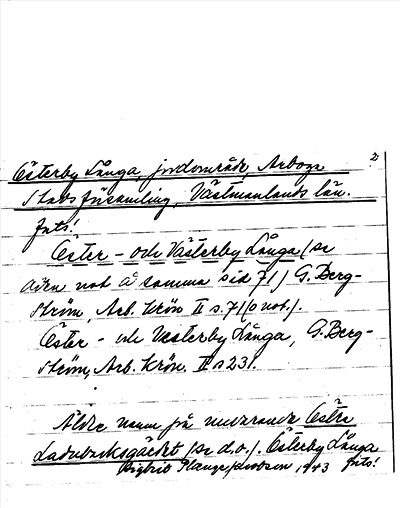 2
Österby Långa, jordområde, Arboga
Stadsförsamling, Västmanlands län.
fnts!
Öster- och Västerby Långa (se
även not å samma sid 71) G. Berg-
ström, Arb. krön II s. 71 (o not.).
Öster- och Vesterby Långa, G. Berg-
ström, Arb. krön. II s 231.
Äldre namn på nuvarande Östra
Ladubacksgärdet (se d.o.). Österby Långa
1943 fnts!